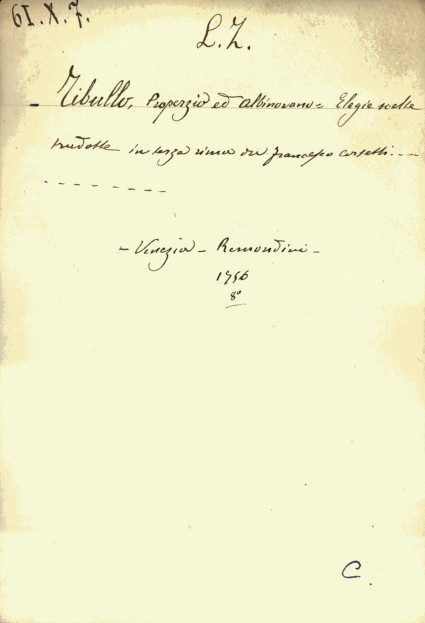 61.X.7.
L.Z.
- Tibullo, Properzio ed Albinovano = Elegie scelte
tradotte in terza rima da Francesco Corsetti. - - -
- - - - - - - - -
- Venezia - Remondini -
1756
8°
C.